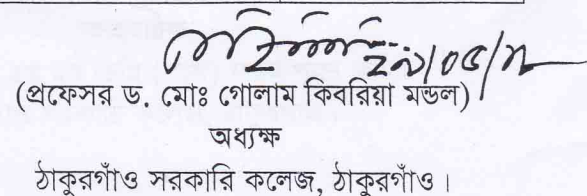 (প্রফেসর ড. মোঃ গোলাম কিবরিয়া মন্ডল)
অধ্যক্ষ
ঠাকুরগাঁও সরকারি কলেজ, ঠাকুরগাঁও।